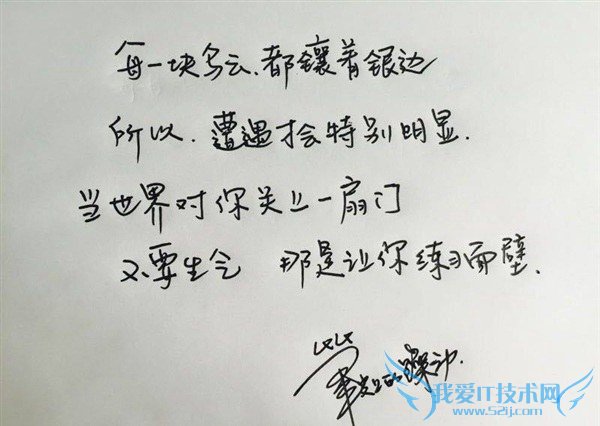 每一块乌云、都镶着银边
所以、遭遇才会特别明显.
当世界对你关上一扇门
不要生气 那是让你练习面壁.
我爱IT技术网
www.52ij.com